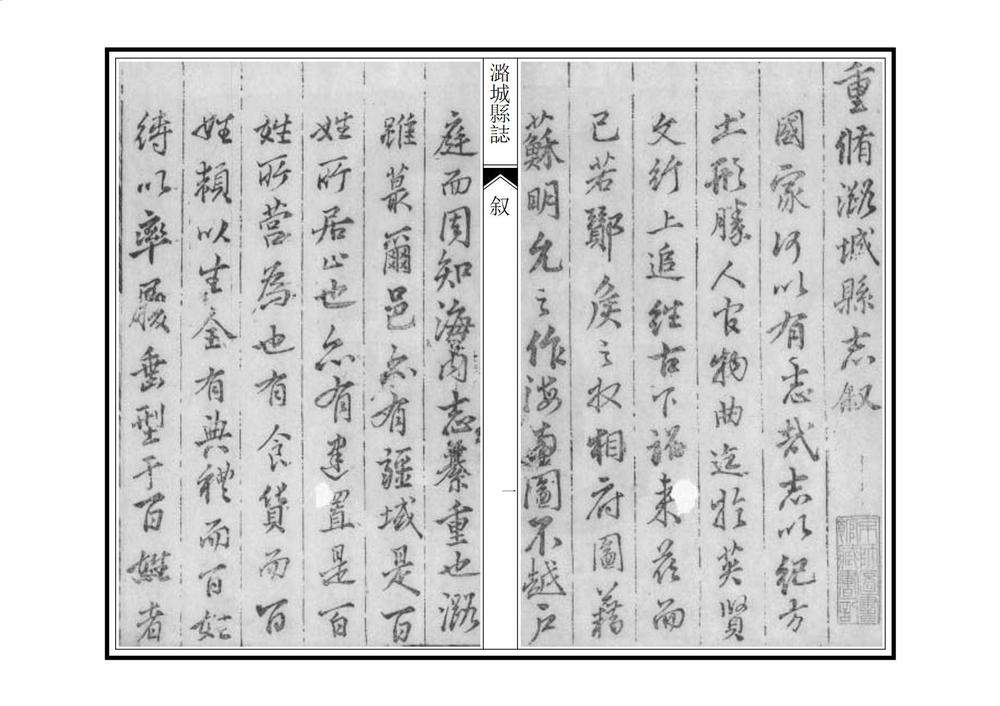 重脩潞城縣志叙
國家何以有志哉志以紀方
土形勝人官物曲迄於英賢
文行上追往古下詔来茲而
已若鄼侯之收相府圖籍
蘇明允之作海圖不越戶
庭而周知海內志綦重也潞
雖蕞爾邑亦有疆域是百
姓所居止也亦有建置是百
姓所營為也有食貨而百
姓賴以生全有典禮而百姓
以率履垂型于百姓者
潞城縣誌
叙
一